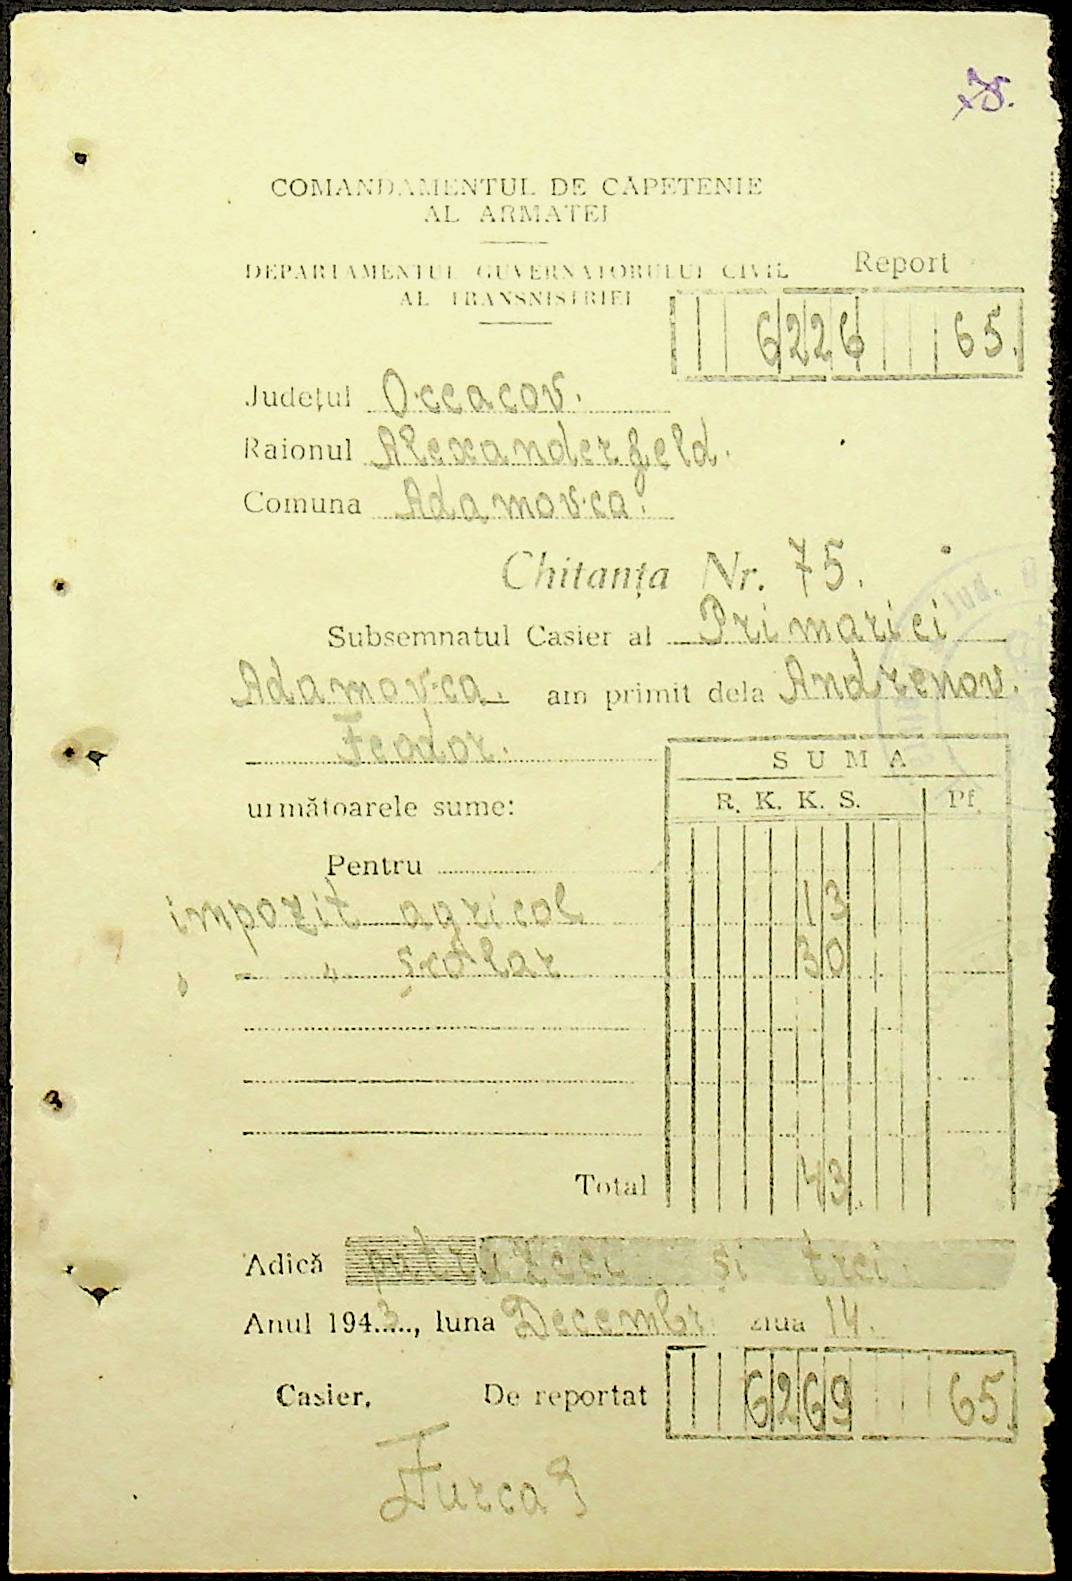 75.
COMANDAMENTUL DE CĂPETENIE
AL ARMATEI
DEPARTAMENTUL GUVERNATORULUI CIVIL
AL TRANSNISTRIEI
Report
6226 65.
Județul Occacov.
Raionul Alexanderfeld.
Comuna Adamovca.
Chitanța Nr. 75.
Subsemnatul Casier al Primariei
Adamovca. am primit dela Andrenov.
Feodor.
următoarele sume:
SUMA
R. K. K. S. Pf.
Pentru
impozit agricol 13
- " - școlar 30
Total 43
Adică patruzeci și trei.
Anul 1943, luna Decembr ziua 14.
Casier, De reportat 6269 65.
Jud. O